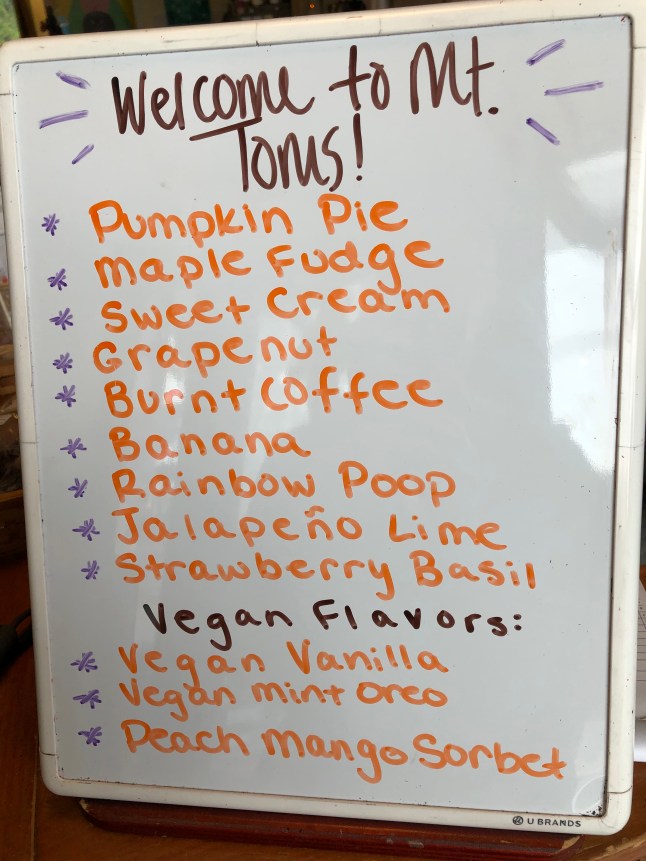 Welcome to Mt.
Toms!
* Pumpkin Pie
* maple Fudge
* Sweet Cream
* Grapenut
* Burnt Coffee
* Banana
* Rainbow Poop
* Jalapeño Lime
* Strawberry Basil
Vegan Flavors:
* Vegan Vanilla
* Vegan mint oreo
* Peach Mango Sorbet
U BRANDS